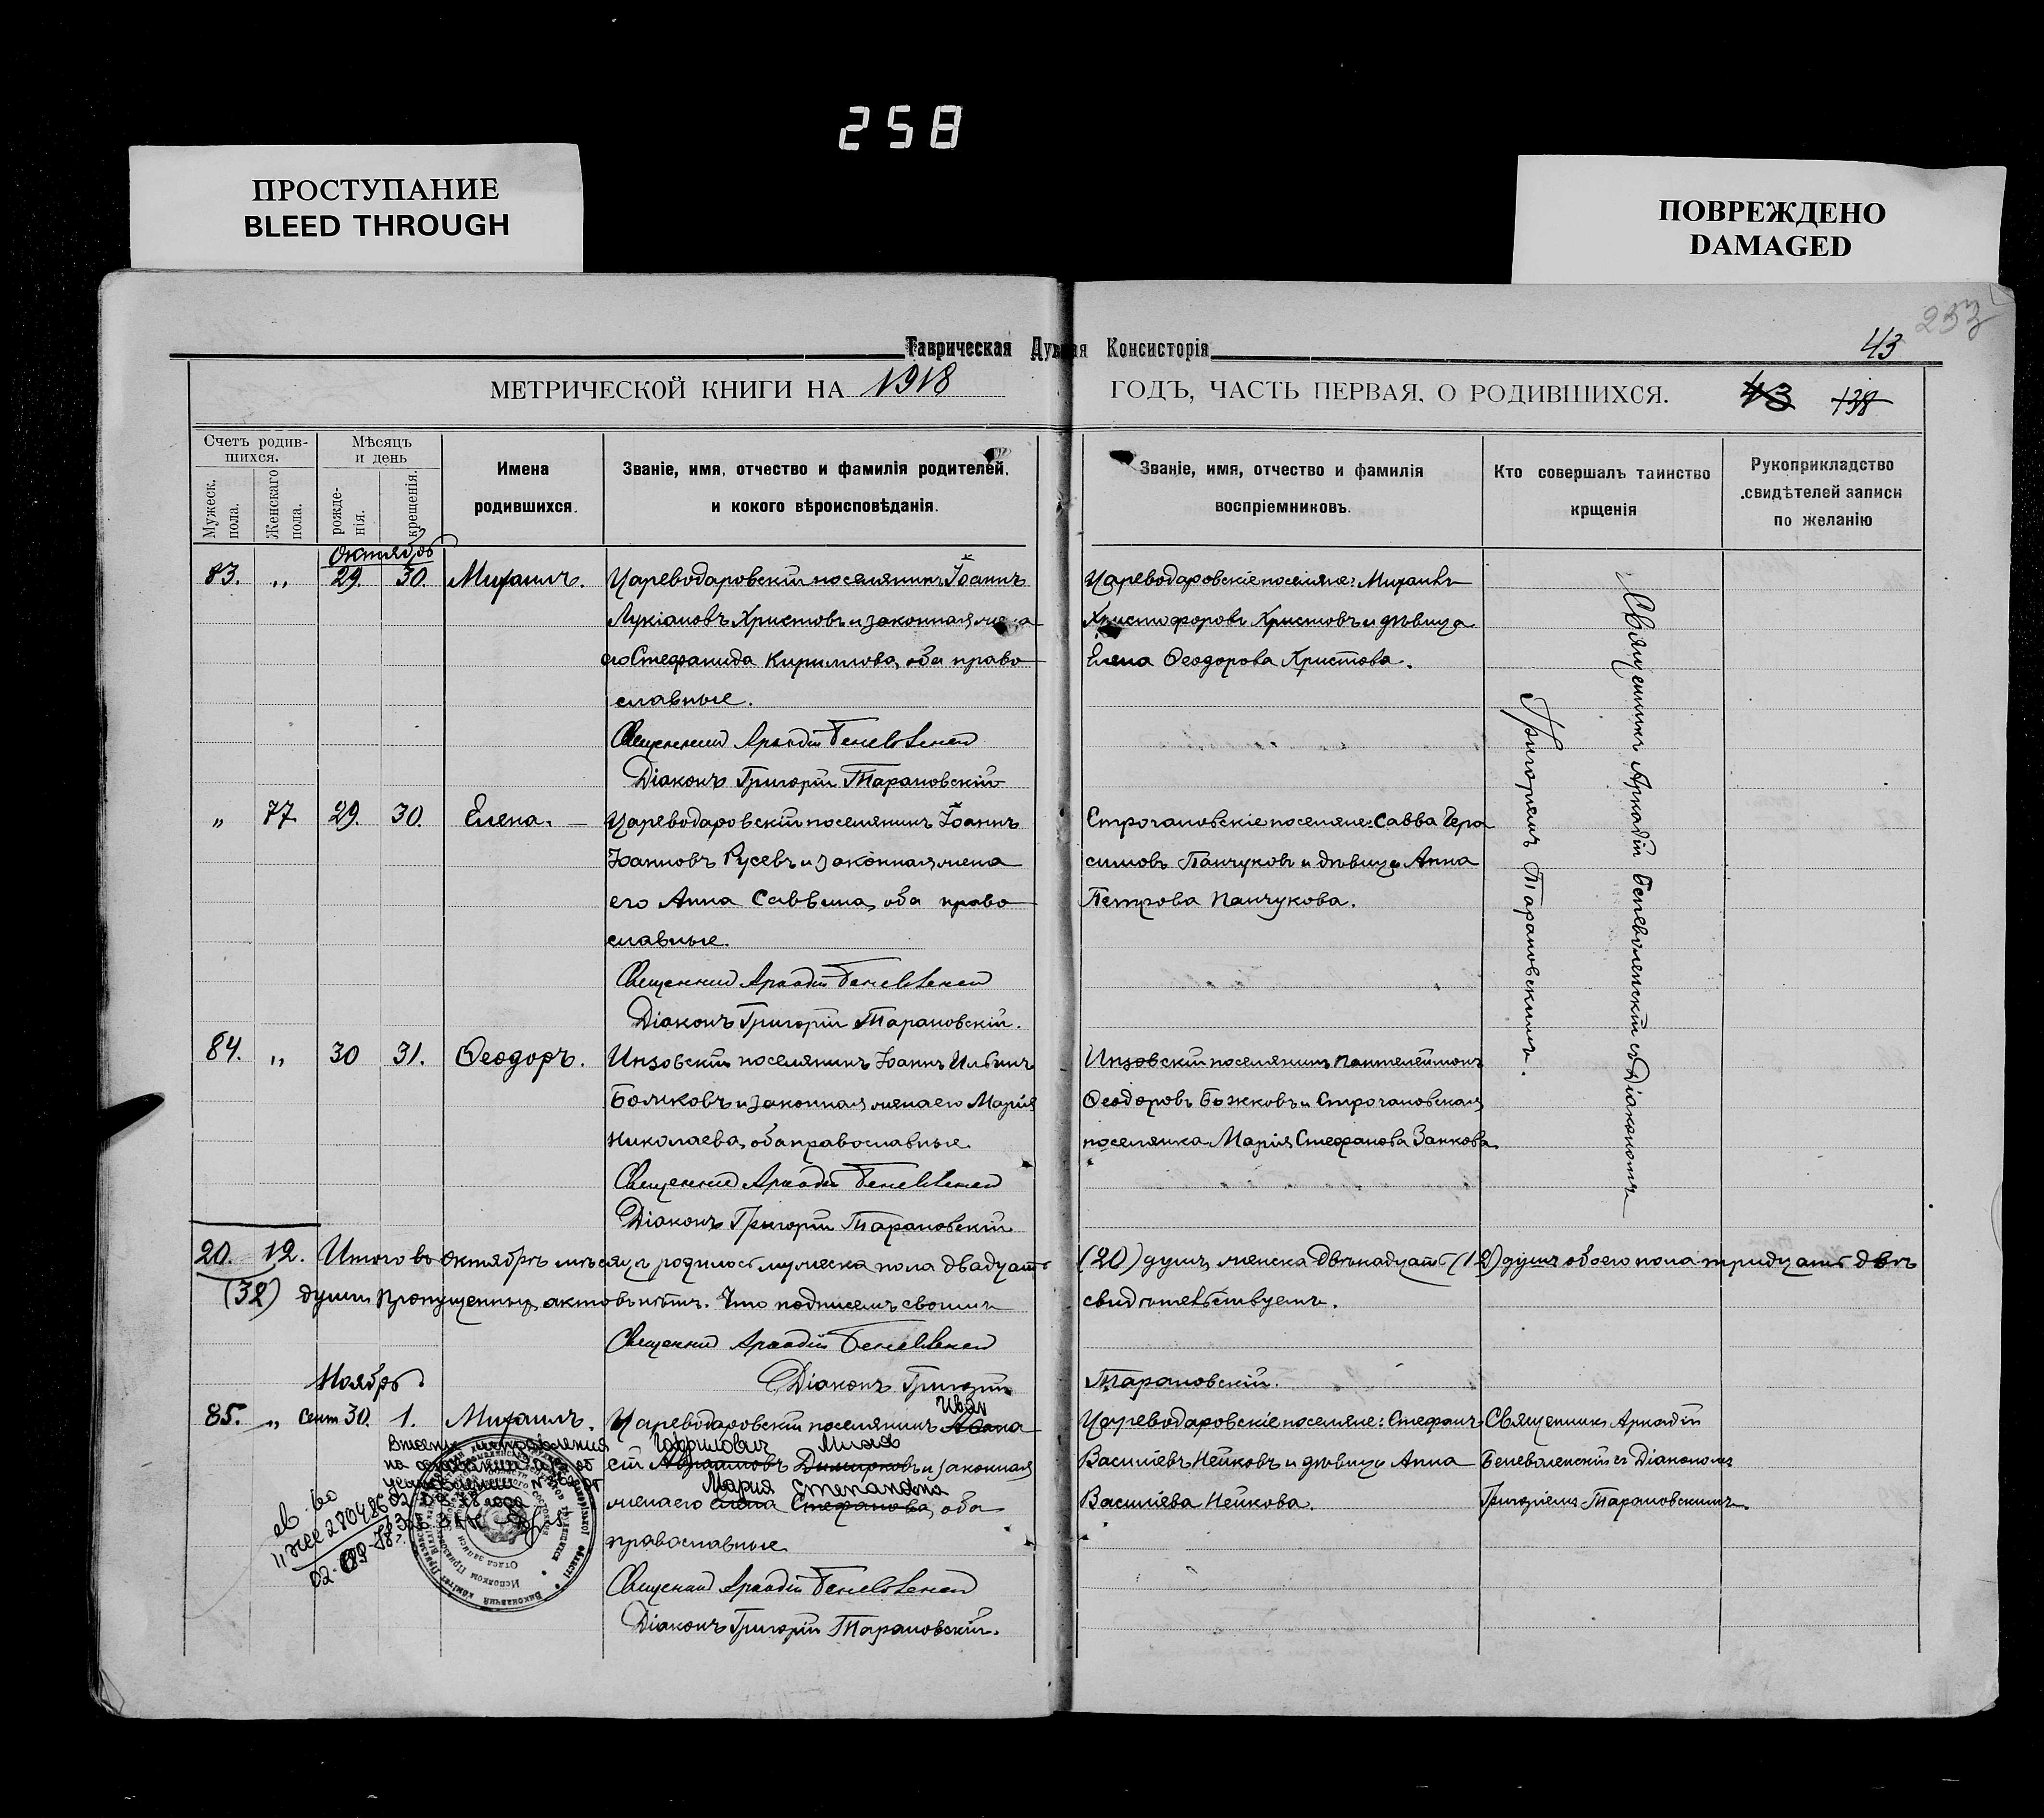 258
ПРОСТУПАНИЕ
BLEED THROUGH
ПОВРЕЖДЕНО
DAMAGED
253
43
Таврическая Духная Консисторія
МЕТРИЧЕСКОЙ КНИГИ НА 1918 ГОДЪ, ЧАСТЬ ПЕРВАЯ, О РОДИВШИХСЯ.
43 138
Счетъ родив-
шихся.
Мужеск.
пола.
Женскаго
пола.
Мѣсяцъ
и день
рожде-
нія.
крещенія.
Имена
родившихся.
Званіе, имя, отчество и фамилія родителей,
и кокого вѣроисповѣданія.
Званіе, имя, отчество и фамилія
воспріемниковъ.
Кто совершалъ таинство
крщенія
Рукоприкладство
свидѣтелей записи
по желанію
Октябрь
83. „ 29. 30. Михаилъ.
Цареводаровскій поселянинъ Іоаннъ
Лукіановъ Христовъ и законная жена
его Стефанида Кириллова, оба право
славные.
Священникъ Аркадій Беневоленскій
Діаконъ Григорій Тарановскій
Цареводаровскіе поселяне: Михаилъ
Христофоровъ Христовъ и дѣвица
Елена Ѳеодорова Христова.
Священникъ Аркадій Беневоленскій съ Діакономъ
Григоріемъ Тарановскимъ.
„ 77 29. 30. Елена.
Цареводаровскій поселянинъ Іоаннъ
Іоанновъ Русевъ и законная жена
его Анна Саввина, оба право
славные.
Священникъ Аркадій Беневоленскій
Діаконъ Григорій Тарановскій.
Строгановскіе поселяне: Савва Гера
симовъ Панчуковъ и дѣвица Анна
Петрова Панчукова.
84. „ 30 31. Ѳеодоръ.
Инзовскій поселянинъ Іоаннъ Ильинъ
Божковъ и законная жена его Марія
Николаева, оба православные
Священникъ Аркадій Беневоленскій
Діаконъ Григорій Тарановскій
Инзовскій поселянинъ Пантелеймонъ
Ѳеодоровъ Божковъ и Строгановская
поселянка Марія Стефанова Занкова
20. 12. Итого въ Октябрѣ мѣсяцѣ родилось мужеска пола двадцать (20) душъ, женска двѣнадцать (12) душъ обоего пола тридцать двѣ
(32) души пропущенныхъ актовъ нѣтъ. Что подписемъ своимъ свидѣтельствуемъ.
Священникъ Аркадій Беневоленскій
Діаконъ Григорій Тарановскій.
Ноябрь
85. „ Сент 30. 1. Михаилъ.
Цареводаровскій поселянинъ Иван
Гаврилович
Мария Степановна
и законная
жена его Стефанова, оба
православные
Священникъ Аркадій Беневоленскій
Діаконъ Григорій Тарановскій.
Цареводаровскіе поселяне: Стефанъ
Василіевъ Нейковъ и дѣвица Анна
Василіева Нейкова.
Священникъ Аркадій
Беневоленскій съ Діакономъ
Григоріемъ Тарановскимъ.
Внесены исправления
на основании
280486